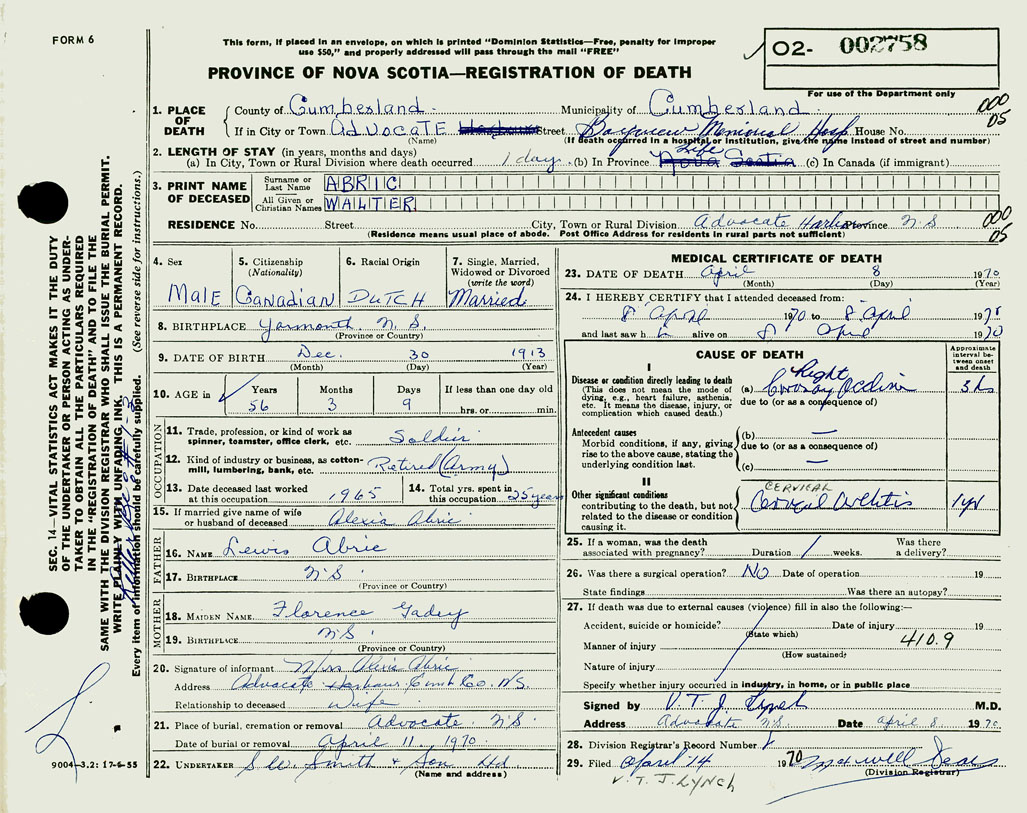 FORM 6
This form, if placed in an envelope, on which is printed "Dominion Statistics—Free, penalty for improper
use $50," and properly addressed will pass through the mail "FREE"
O2- 002758
For use of the Department only
PROVINCE OF NOVA SCOTIA—REGISTRATION OF DEATH
1. PLACE OF DEATH
County of Cumberland Municipality of Cumberland 000
If in City or Town ADVOCATE Harbour Street Bayview Memorial Hosp. House No. 05
(Name) (If death occurred in a hospital or institution, give the name instead of street and number)
2. LENGTH OF STAY (in years, months and days)
(a) In City, Town or Rural Division where death occurred 1 day. (b) In Province Life Nova Scotia (c) In Canada (if immigrant)
3. PRINT NAME OF DECEASED
Surname or Last Name ABRIC
All Given or Christian Names WALTER
RESIDENCE No. Street City, Town or Rural Division Advocate Harbour Province N.S 000 05
(Residence means usual place of abode. Post Office Address for residents in rural parts not sufficient)
4. Sex Male
5. Citizenship (Nationality) Canadian
6. Racial Origin DUTCH
7. Single, Married, Widowed or Divorced (write the word) Married
8. BIRTHPLACE Yarmouth N.S.
(Province or Country)
9. DATE OF BIRTH Dec. 30 1913
(Month) (Day) (Year)
10. AGE in Years 56 Months 3 Days 9 If less than one day old hrs. or min.
OCCUPATION
11. Trade, profession, or kind of work as spinner, teamster, office clerk, etc. Soldier
12. Kind of industry or business, as cotton-mill, lumbering, bank, etc. Retired (Army)
13. Date deceased last worked at this occupation 1965
14. Total yrs. spent in this occupation 25 years
15. If married give name of wife or husband of deceased Alexia Abric
FATHER
16. NAME Lewis Abric
17. BIRTHPLACE N.S
(Province or Country)
MOTHER
18. MAIDEN NAME Florence
19. BIRTHPLACE N.S
(Province or Country)
20. Signature of informant Mrs Abric
Address Advocate Harbour Cumb Co. N.S.
Relationship to deceased Wife
21. Place of burial, cremation or removal Advocate N.S
Date of burial or removal April 11, 1970
22. UNDERTAKER S.W. Smith & Son Ltd
(Name and address)
MEDICAL CERTIFICATE OF DEATH
23. DATE OF DEATH April 8 1970
(Month) (Day) (Year)
24. I HEREBY CERTIFY that I attended deceased from:
8 April 1970 to 8 April 1970
and last saw h alive on 8 April 1970
CAUSE OF DEATH
Approximate interval between onset and death
I
Disease or condition directly leading to death
(This does not mean the mode of dying, e.g., heart failure, asthenia, etc. It means the disease, injury, or complication which caused death.)
(a) Right
due to (or as a consequence of)
Antecedent causes
Morbid conditions, if any, giving rise to the above cause, stating the underlying condition last.
(b) —
due to (or as a consequence of)
(c) —
II
Other significant conditions
contributing to the death, but not related to the disease or condition causing it.
CERVICAL
1 yr
25. If a woman, was the death associated with pregnancy? Duration weeks. Was there a delivery?
26. Was there a surgical operation? NO Date of operation 19
State findings Was there an autopsy?
27. If death was due to external causes (violence) fill in also the following:—
Accident, suicide or homicide? Date of injury 19
(State which)
410.9
Manner of injury
(How sustained)
Nature of injury
Specify whether injury occurred in industry, in home, or in public place
Signed by V.T.J. Lynch M.D.
Address Advocate N.S. Date April 8 1970
28. Division Registrar's Record Number
29. Filed April 14 1970 Maxwell
(Division Registrar)
V.T.J. LYNCH
SEC. 14—VITAL STATISTICS ACT MAKES IT THE DUTY
OF THE UNDERTAKER OR PERSON ACTING AS UNDER-
TAKER TO OBTAIN ALL THE PARTICULARS REQUIRED
IN THE "REGISTRATION OF DEATH" AND TO FILE THE
SAME WITH THE DIVISION REGISTRAR WHO SHALL ISSUE THE BURIAL PERMIT.
WRITE PLAINLY WITH UNFADING INK. THIS IS A PERMANENT RECORD.
Every item of information should be carefully supplied. (See reverse side for instructions.)
9004-3.2: 17-6-55